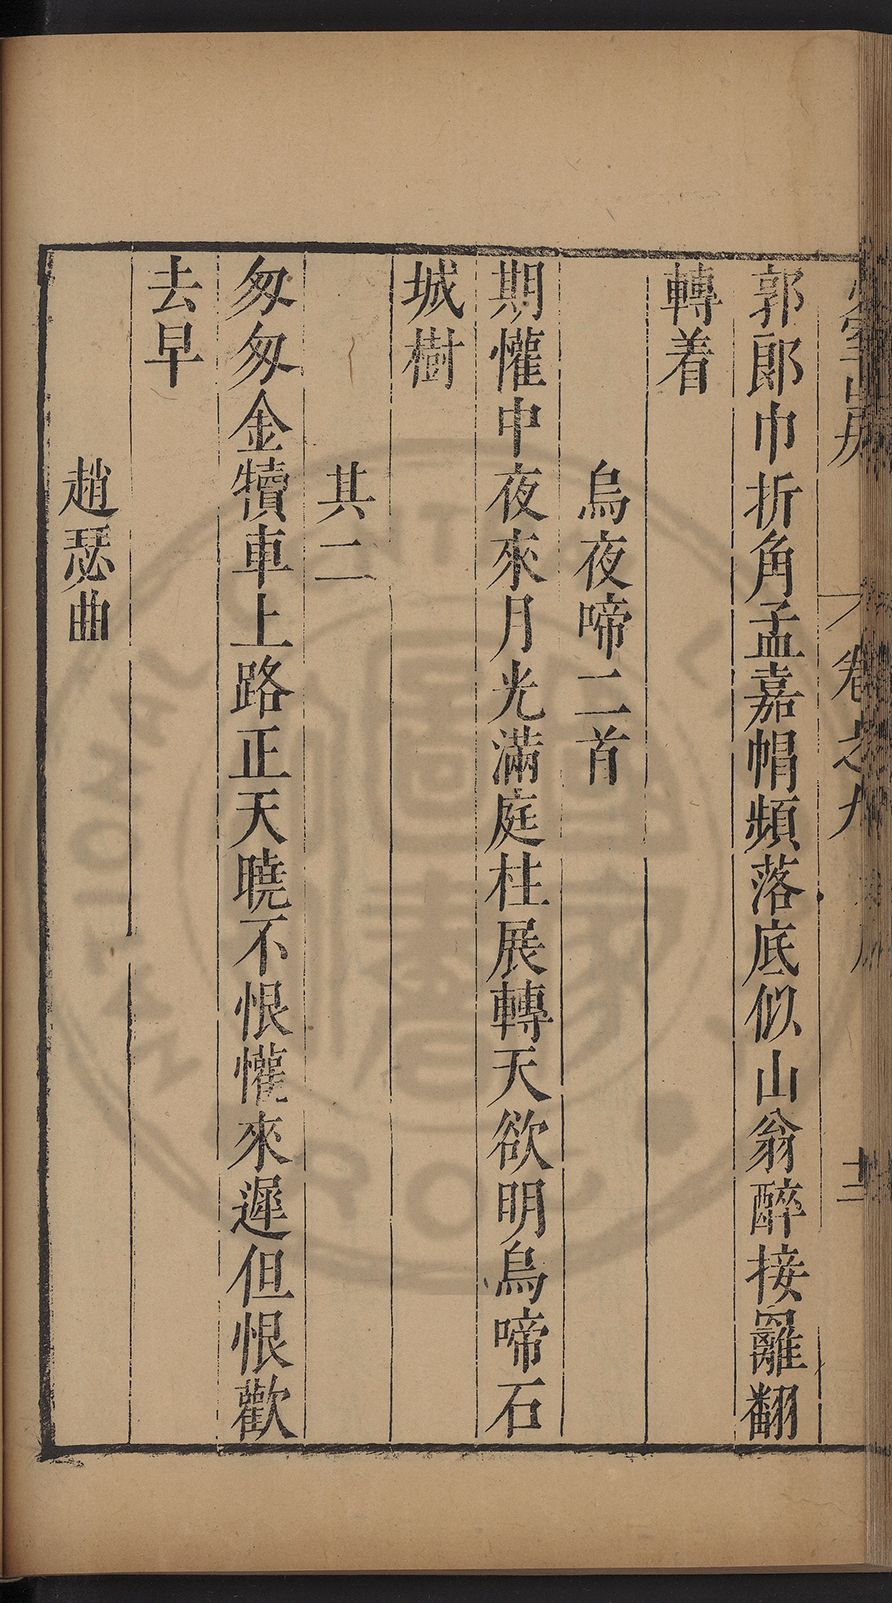 卷之九
郭郎巾折角孟嘉帽頻落底似山翁醉接䍦翻
轉着
烏夜啼二首
期懽中夜來月光滿庭柱展轉天欲明烏啼石
城樹
其二
匆匆金犢車上路正天曉不恨懽來遲但恨歡
去早
趙瑟曲